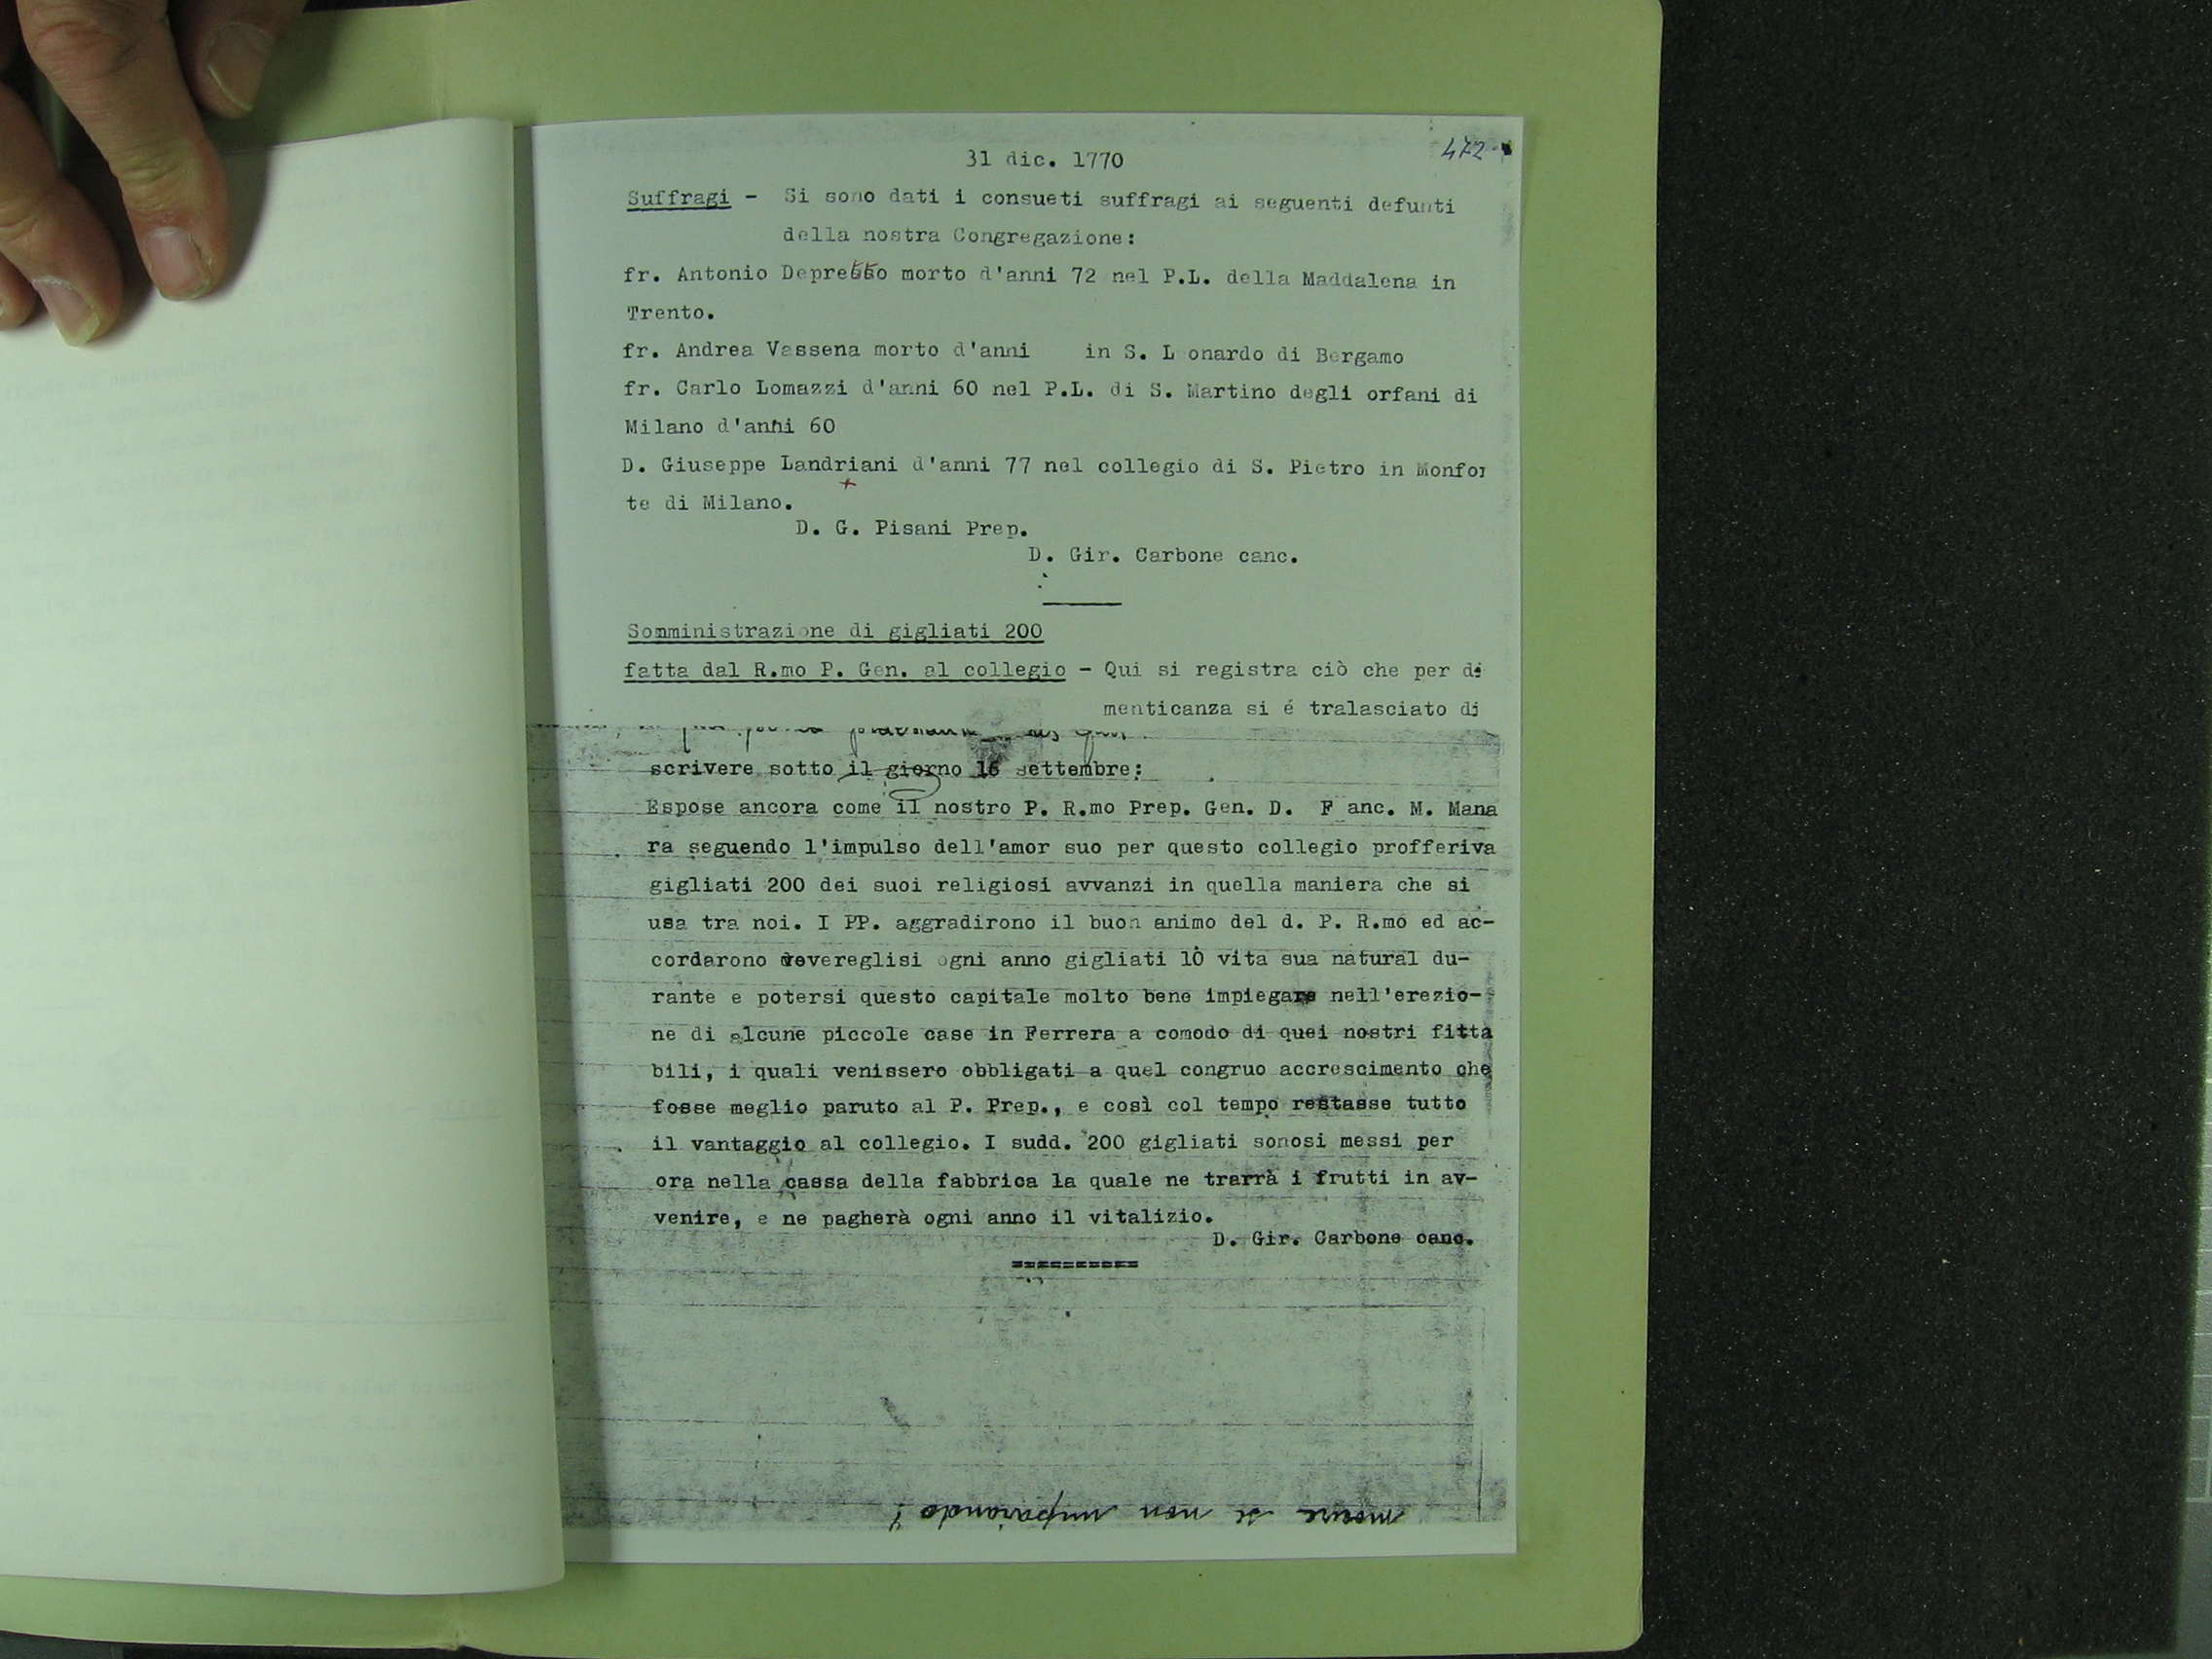 472
31 dic. 1770
Suffragi - Si sono dati i consueti suffragi ai seguenti defunti
della nostra Congregazione:
fr. Antonio Depretto morto d'anni 72 nel P.L. della Maddalena in
Trento.
fr. Andrea Vassena morto d'anni in S. L onardo di Bergamo
fr. Carlo Lomazzi d'anni 60 nel P.L. di S. Martino degli orfani di
Milano d'anni 60
D. Giuseppe Landriani d'anni 77 nel collegio di S. Pietro in Monfor
+
te di Milano.
D. G. Pisani Prep.
D. Gir. Carbone canc.
Somministrazione di gigliati 200
fatta dal R.mo P. Gen. al collegio - Qui si registra ciò che per di
menticanza si é tralasciato di
scrivere sotto il giorno 16 settembre:
Espose ancora come il nostro P. R.mo Prep. Gen. D. F anc. M. Mana
ra seguendo l'impulso dell'amor suo per questo collegio profferiva
gigliati 200 dei suoi religiosi avvanzi in quella maniera che si
usa tra noi. I PP. aggradirono il buon animo del d. P. R.mo ed ac-
cordarono devereglisi ogni anno gigliati 10 vita sua natural du-
rante e potersi questo capitale molto bene impiegare nell'erezio-
ne di alcune piccole case in Ferrera a comodo di quei nostri fitta
bili, i quali venissero obbligati a quel congruo accrescimento che
fosse meglio paruto al P. Prep., e così col tempo restasse tutto
il vantaggio al collegio. I sudd. 200 gigliati sonosi messi per
ora nella cassa della fabbrica la quale ne trarrà i frutti in av-
venire, e ne pagherà ogni anno il vitalizio.
D. Gir. Carbone canc.
==========